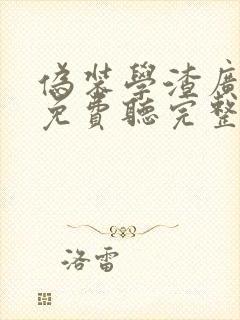 偽裝學渣廣
免費聽完整
洛雷